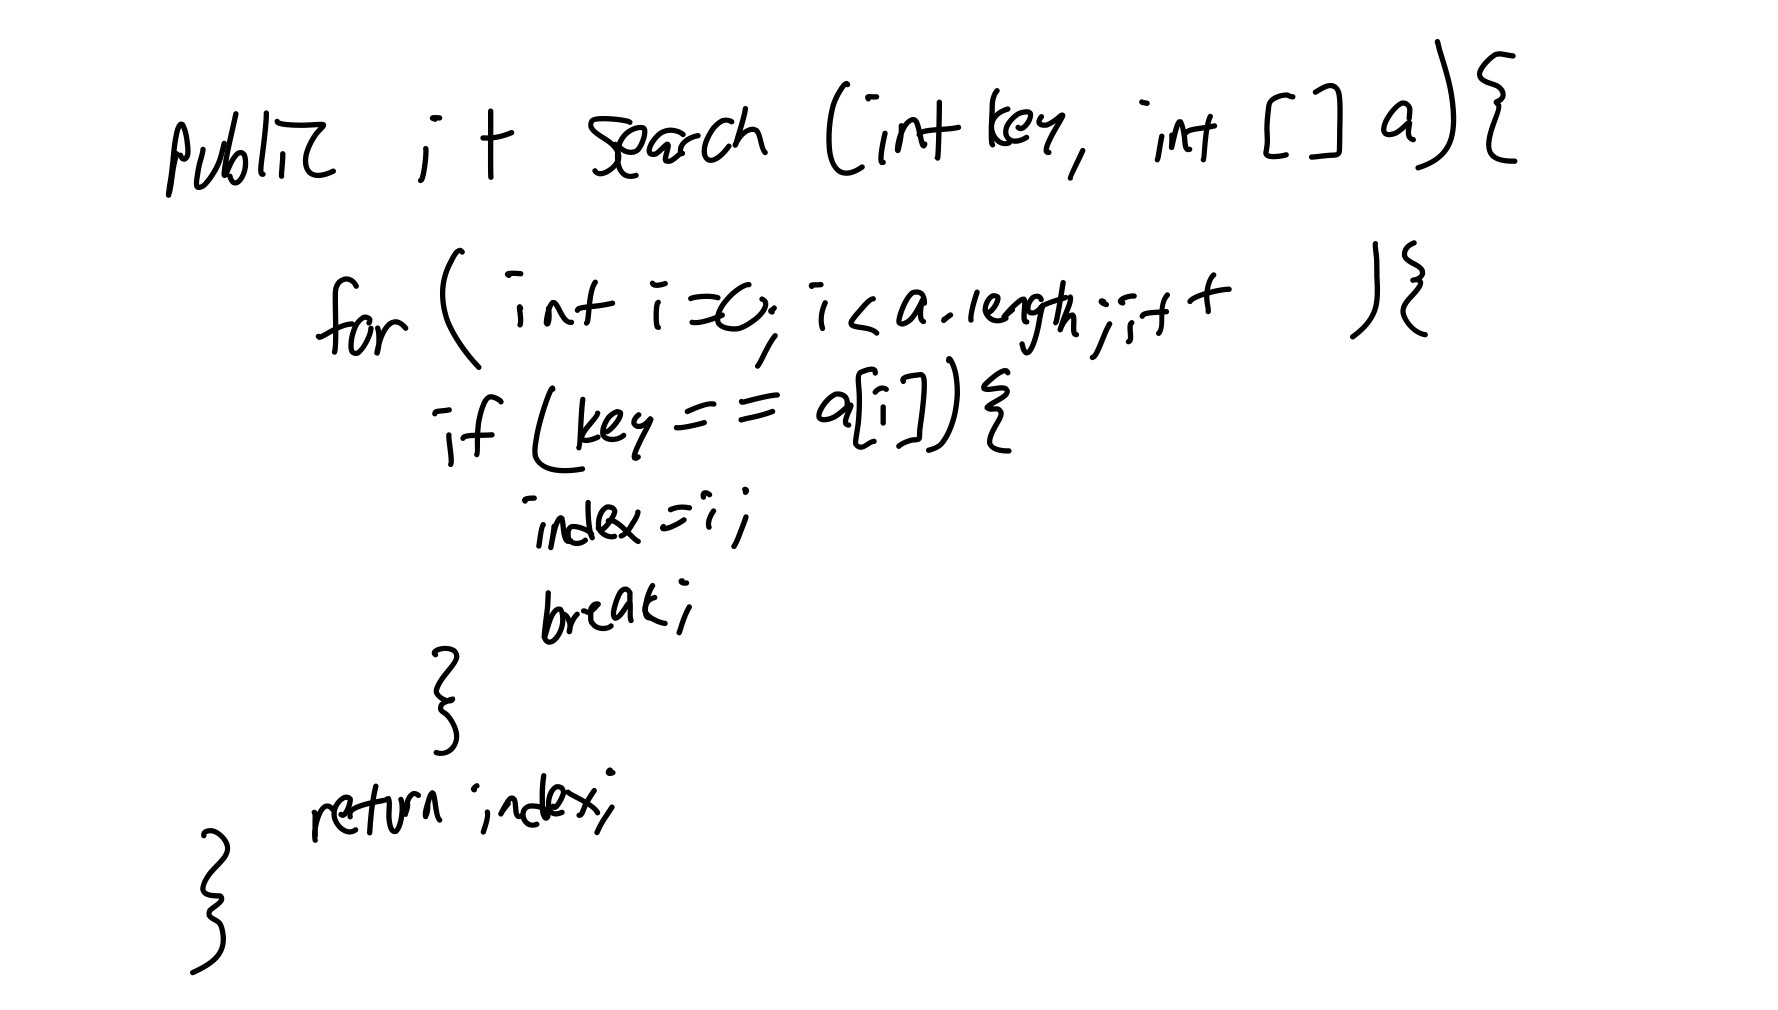 public it search (int key, int [] a){
for ( int i=0; i < a.length; i++ ){
if (key == a[i]){
index = i;
break;
}
return index;
}